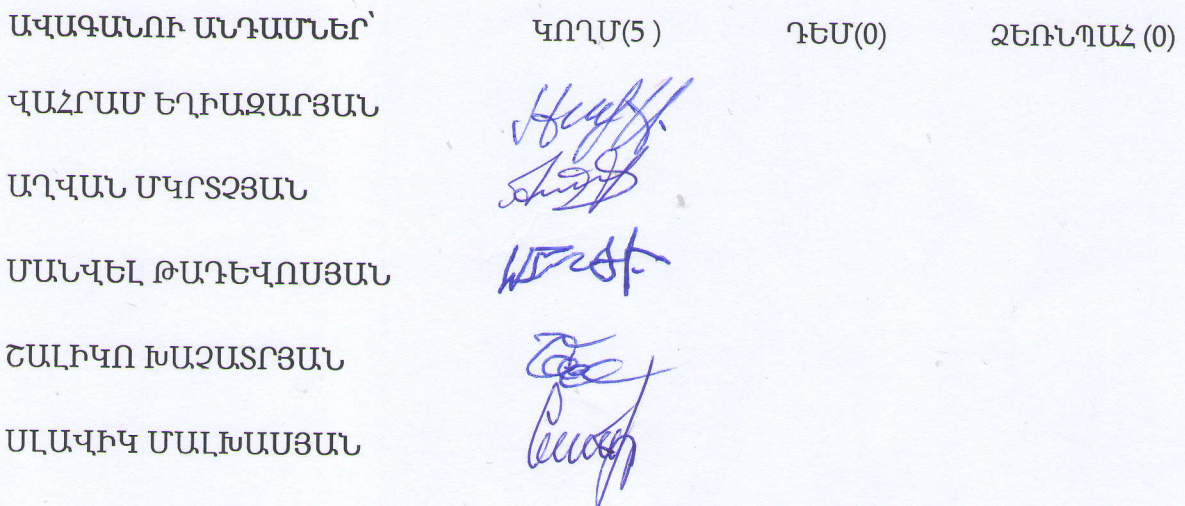 ԱՎԱԳԱՆՈՒ ԱՆԴԱՄՆԵՐ՝ ԿՈՂՄ(5 ) ԴԵՄ(0) ՁԵՌՆՊԱՀ (0)
ՎԱՀՐԱՄ ԵՂԻԱԶԱՐՅԱՆ
ԱՂՎԱՆ ՄԿՐՏՉՅԱՆ
ՄԱՆՎԵԼ ԹԱԴԵՎՈՍՅԱՆ
ՇԱԼԻԿՈ ԽԱՉԱՏՐՅԱՆ
ՍԼԱՎԻԿ ՄԱԼԽԱՍՅԱՆ